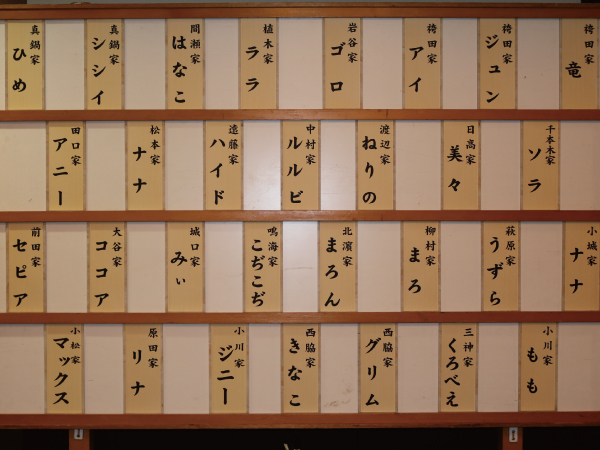 袴田家 竜
袴田家 ジュン
袴田家 アイ
岩谷家 ゴロ
植木家 ララ
間瀬家 はなこ
真鍋家 シシイ
真鍋家 ひめ
千本木家 ソラ
日高家 美々
渡辺家 ねりの
中村家 ルルビ
遠藤家 ハイド
松本家 ナナ
田口家 アニー
小城家 ナナ
萩原家 うずら
柳村家 まろ
北濱家 まろん
鳴海家 こぢこぢ
城口家 みぃ
大谷家 ココア
前田家 セピア
小川家 もも
三神家 くろべえ
西脇家 グリム
西脇家 きなこ
小川家 ジニー
原田家 リナ
小松家 マックス